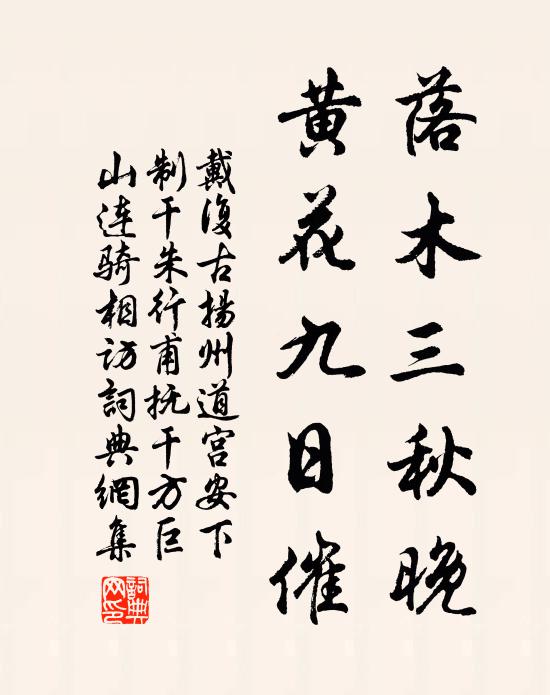 落木三秋晚
黄花九日催
戴復古揚州道宫安下
制干朱行甫抚干方巨
山连骑相访詞典網集
詞典网印